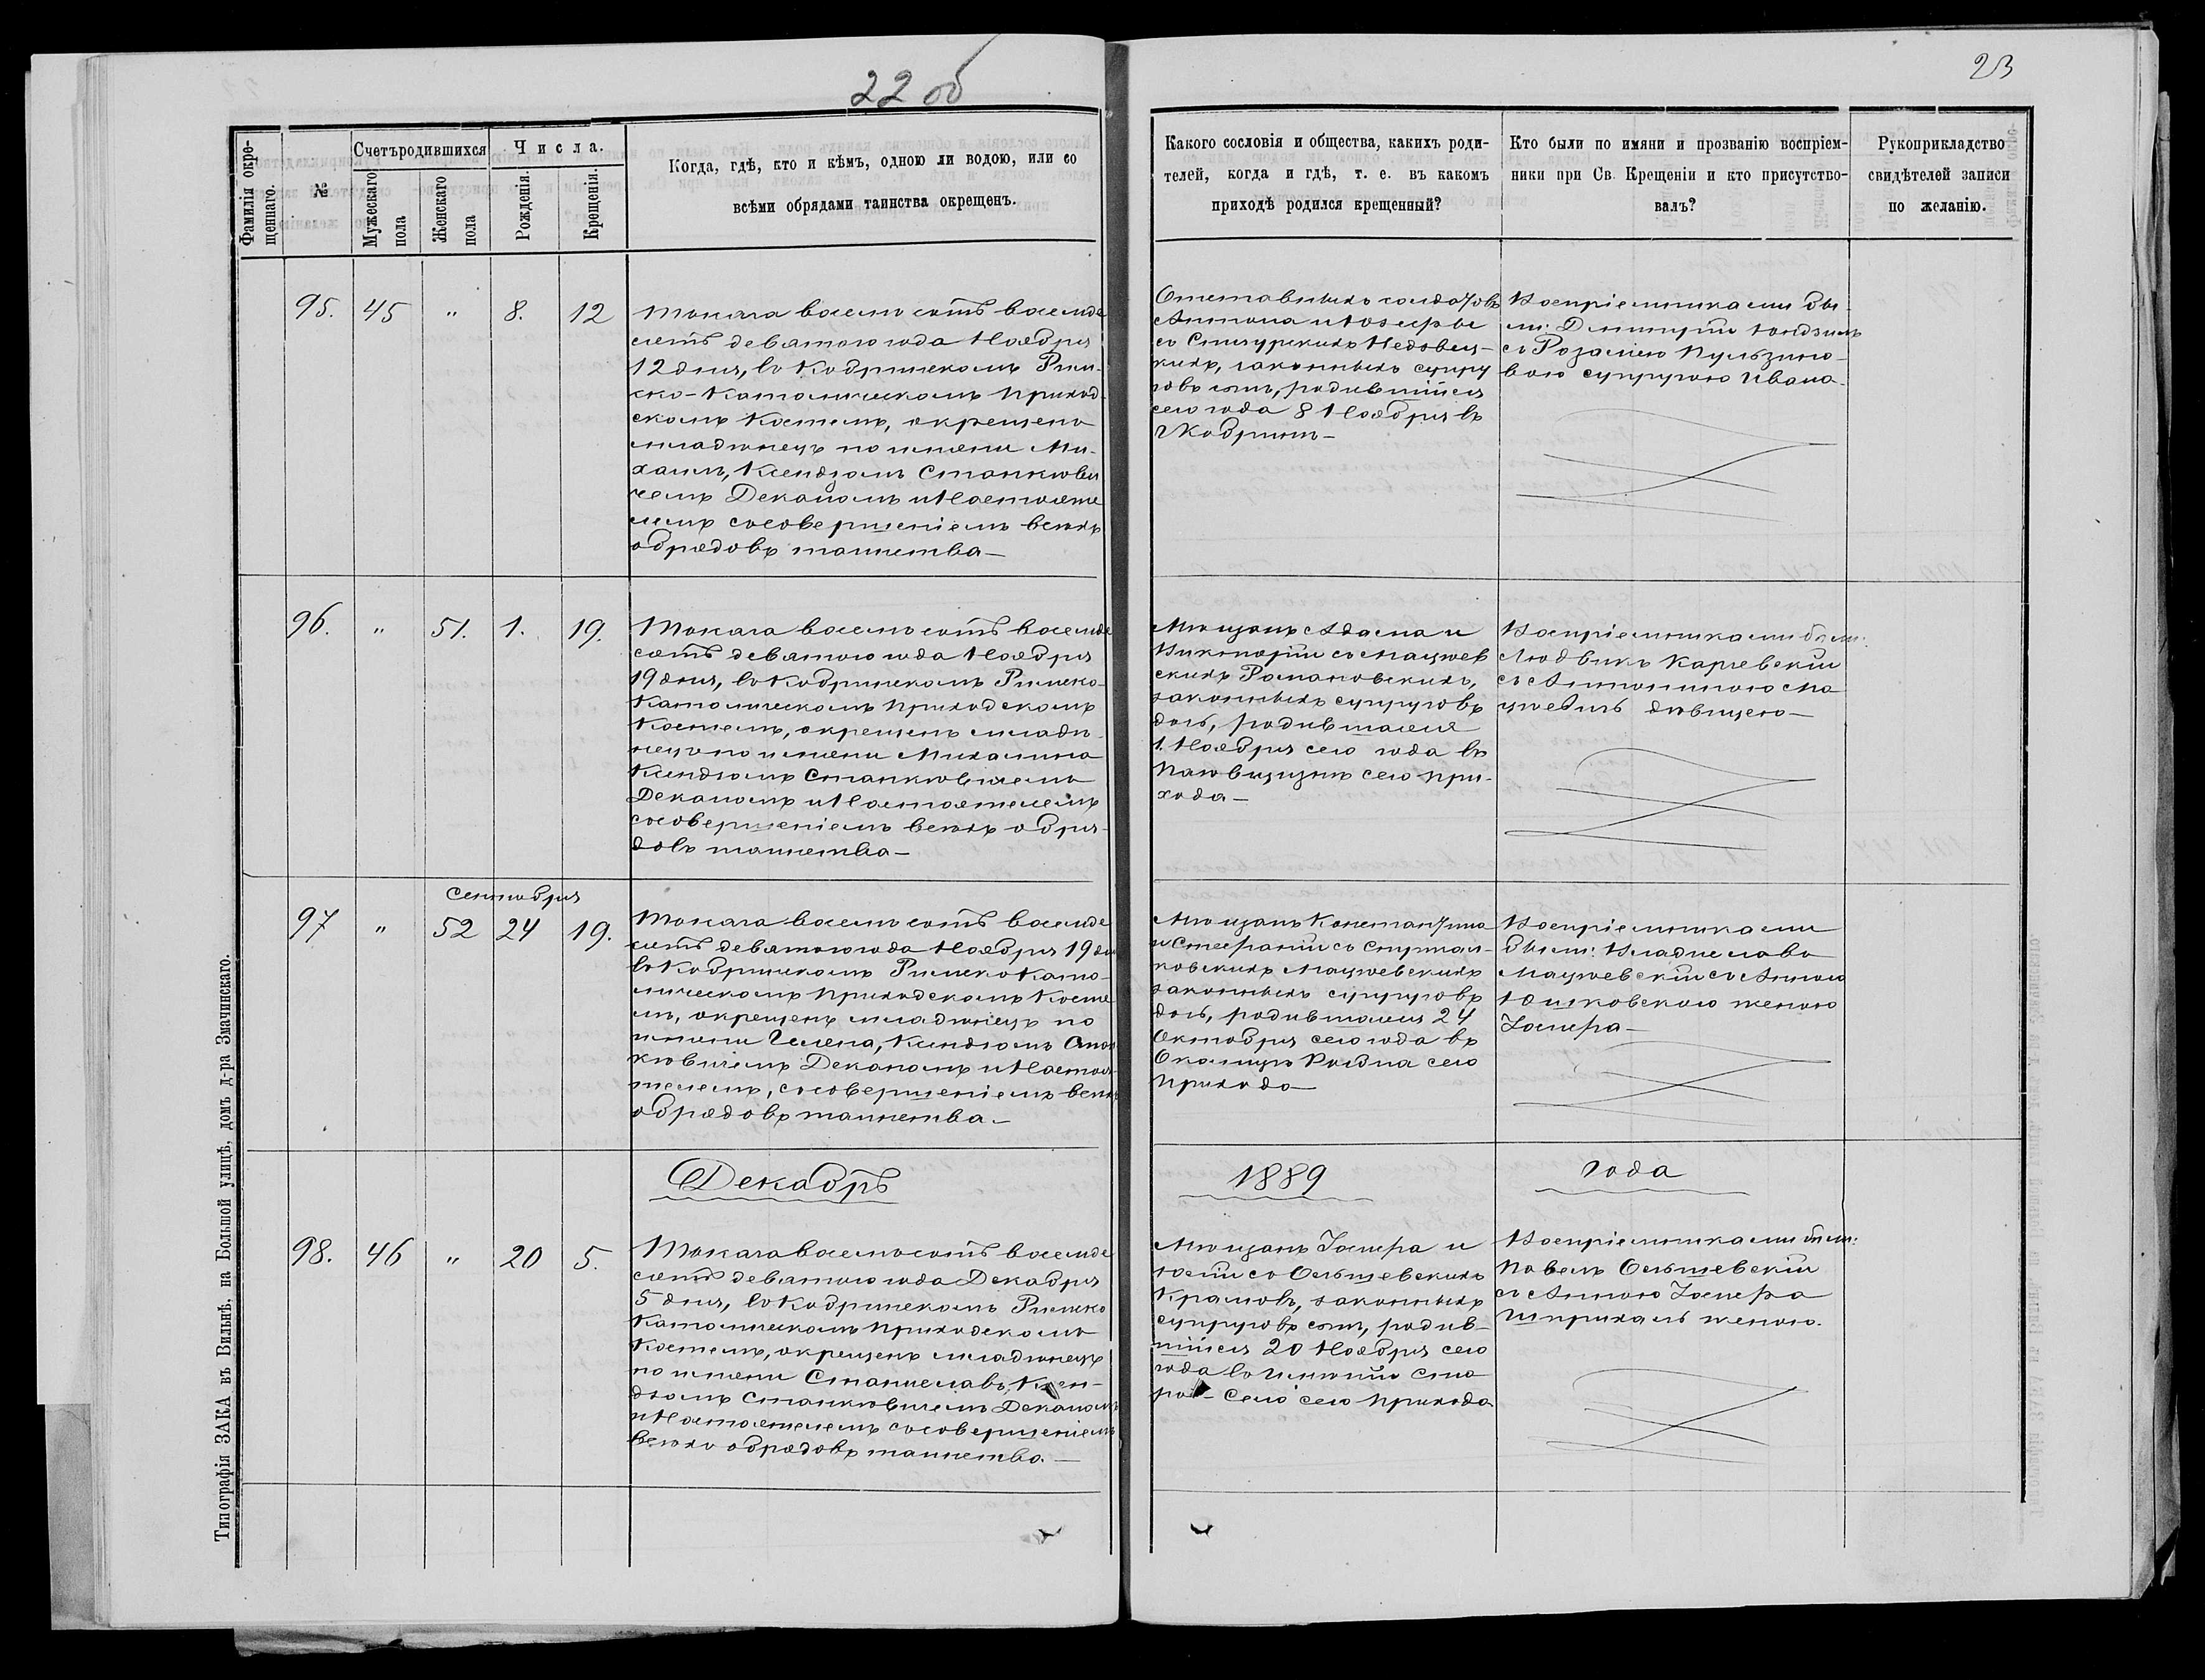 22 об
23
Фамилія окрещеннаго.
№
Счетъ родившихся
Мужескаго пола
Женскаго пола
Числа.
Рожденія.
Крещенія.
Когда, гдѣ, кто и кѣмъ, одною ли водою, или со
всѣми обрядами таинства окрещенъ.
Какого сословія и общества, какихъ роди-
телей, когда и гдѣ, т. е. въ какомъ
приходѣ родился крещенный?
Кто были по имяни и прозванію воспріем-
ники при Св. Крещеніи и кто присутство-
валъ?
Рукоприкладство
свидѣтелей записи
по желанію.
95. 45 " 8. 12
Тысяча восемь сотъ восемьде
сятъ девятого года Ноября
12 дня, въ Кобринскомъ Рим-
ско-Католическомъ приход
скомъ Костелѣ, окрещенъ
младенецъ по имени Ми-
хаилъ, Ксендзомъ Станкеви
чемъ Деканомъ и Настояте
лемъ со совершеніемъ всѣхъ
обрядовъ таинства—
Отставныхъ солдатовъ
Антона и Юзефы
со Стигурскихъ Недовец-
кихъ, законныхъ супру
говъ сынъ, родившійся
сего года 8 Ноября въ
г Кобринѣ—
Воспріемниками бы
ли: Дмитрій
съ Розаліею
вою супругою Ивана.
96. " 51. 1. 19.
Тысяча восемь сотъ восемьде
сятъ девятого года Ноября
19 дня, въ Кобринскомъ Римско-
Католическомъ приходскомъ
Костелѣ, окрещенъ младе-
нецъ по имени Михалина
Ксендзомъ Станкевичемъ
Деканомъ и Настоятелемъ
со совершеніемъ всѣхъ обря-
довъ таинства—
Мѣщанъ Адама и
Викторіи съ Мацеев
скихъ Романовскихъ,
законныхъ супруговъ
дочь, родившаяся
1. Ноября сего года въ
сего при-
хода—
Воспріемниками были:
Людвикъ Карчевскій
съ Антониною Ма
дѣвицею—
Сентября
97 " 52 24 19.
Тысяча восемь сотъ восемьде
сятъ девятого года Ноября 19 дня
въ Кобринскомъ Римско Като-
лическомъ приходскомъ Косте
лѣ, окрещенъ младенецъ по
имени Гелена, Ксендзомъ Стан
кевичемъ Деканомъ и Настоя-
телемъ, со совершеніемъ всѣхъ
обрядовъ таинства.—
Мѣщанъ Константина
и Стефаніи съ
Мацеевскихъ
законныхъ супруговъ
дочь, родившаяся 24
Октября сего года въ
Околицѣ сего
прихода—
Воспріемниками
были: Владиславъ
Мацеевскій съ Анною
Юшковскою женою
Іосифа—
Декабрь 1889 года
98. 46 " 20 5.
Тысяча восемь сотъ восемьде
сятъ девятого года Декабря
5 дня, въ Кобринскомъ Римско
Католическомъ приходскомъ
Костелѣ, окрещенъ младенецъ
по имени Станиславъ, Ксен-
дзомъ Станкевичемъ Деканомъ
и Настоятелемъ со совершеніемъ
всѣхъ обрядовъ таинства.—
Мѣщанъ Іосифа и
Юзіи со Ольшевскихъ
законныхъ
супруговъ сынъ, родив-
шійся 20 Ноября сего
года въ имѣніи Ста
рой- Село сего прихода
Воспріемниками были:
Павелъ Ольшевскій
съ Анною Іосифа
женою.
Типографія ЗАКА въ Вильнѣ, на Большой улицѣ, домъ д-ра Змачинскаго.